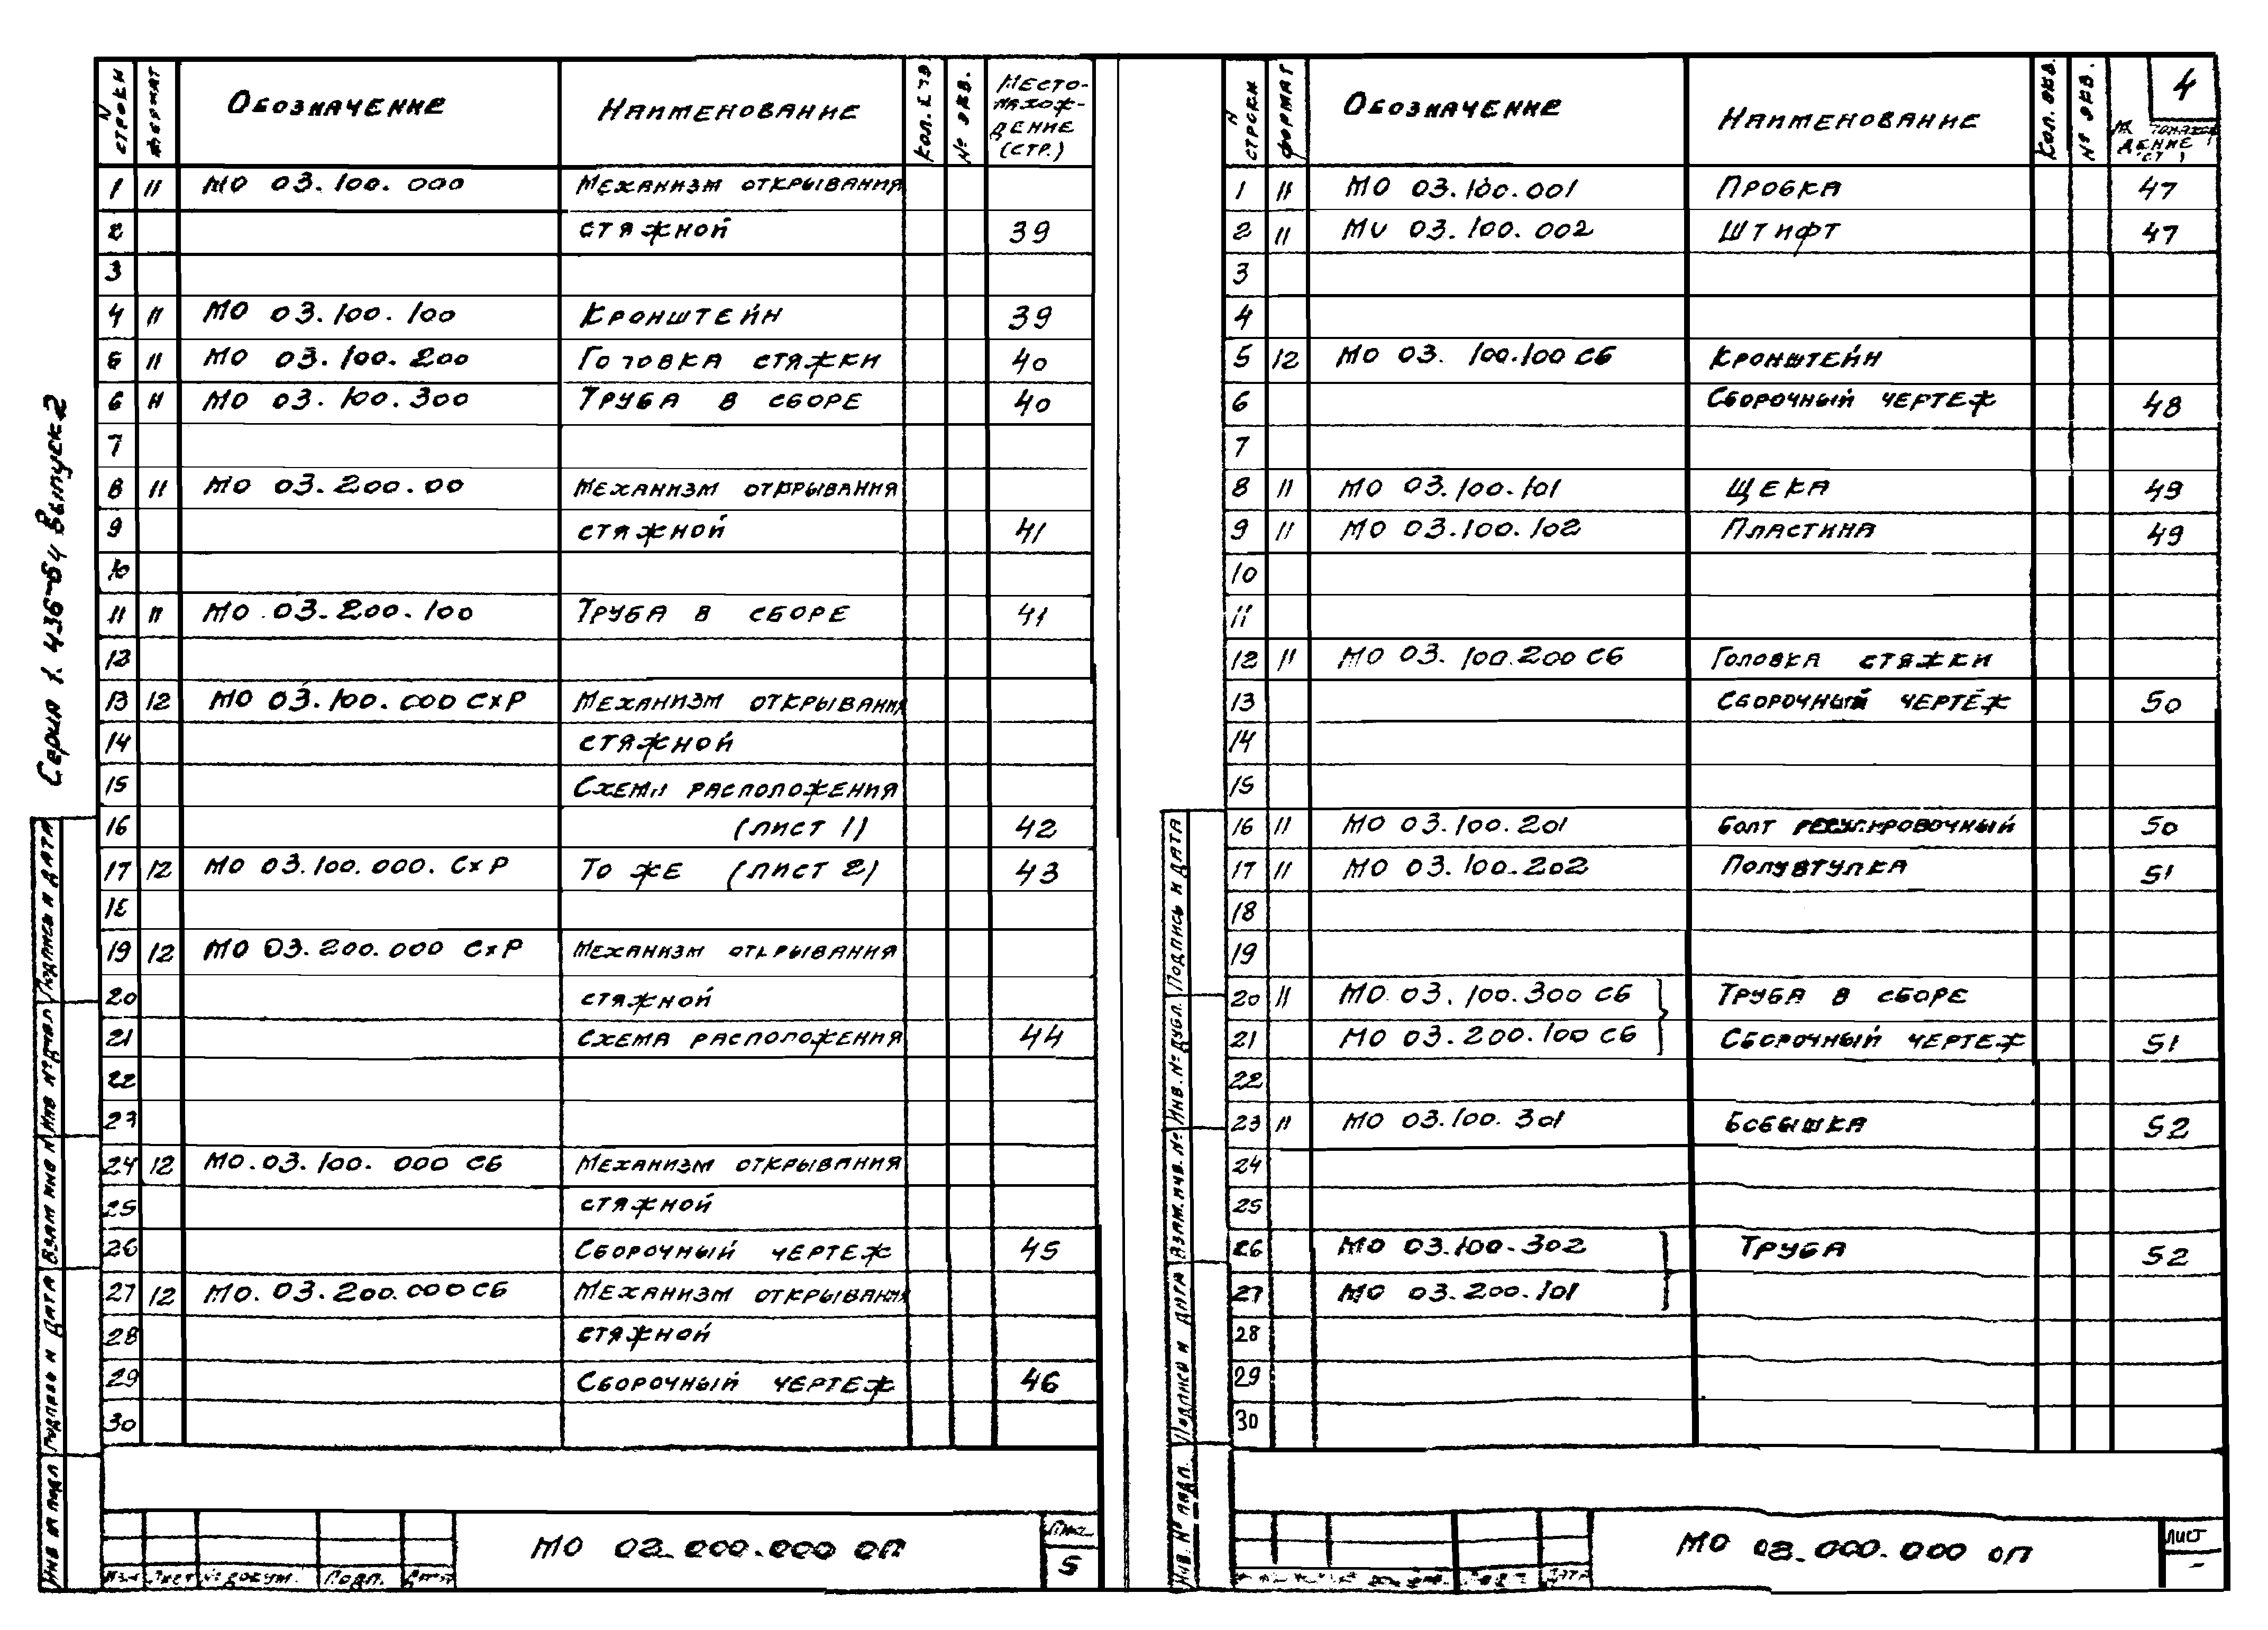 Серия 1.436-64 Выпуск 2
N строки формат Обозначение Наименование Кол. экз № экв. Место-
нахож-
дение
(стр.)
1 11 МО 03.100.000 Механизм открывания
2 стяжной 39
3
4 11 МО 03.100.100 Кронштейн 39
5 11 МО 03.100.200 Головка стяжки 40
6 11 МО 03.100.300 Труба в сборе 40
7
8 11 МО 03.200.00 Механизм открывания
9 стяжной 41
10
11 11 МО 03.200.100 Труба в сборе 41
12
13 12 МО 03.100.000 СхР Механизм открывания
14 стяжной
15 Схема расположения
16 (лист 1) 42
17 12 МО 03.100.000. СхР То же (лист 2) 43
18
19 12 МО 03.200.000 СхР Механизм открывания
20 стяжной
21 Схема расположения 44
22
23
24 12 МО.03.100.000 СБ Механизм открывания
25 стяжной
26 Сборочный чертеж 45
27 12 МО.03.200.000 СБ Механизм открывания
28 стяжной
29 Сборочный чертеж 46
30
Инв № подл Подпись и дата Взам инв № Инв № дубл Подпись и дата
Изм Лист № докум. Подп. Дата
МО 03.000.000 ОП
Лист
5
4
N строки формат Обозначение Наименование Кол. экз. № экв.
дение
1 11 МО 03.100.001 Пробка 47
2 11 МО 03.100.002 Штифт 47
3
4
5 12 МО 03.100.100 СБ Кронштейн
6 Сборочный чертеж 48
7
8 11 МО 03.100.101 Щека 49
9 11 МО 03.100.102 Пластина 49
10
11
12 11 МО 03.100.200 СБ Головка стяжки
13 Сборочный чертёж 50
14
15
16 11 МО 03.100.201 Болт регулировочный 50
17 11 МО 03.100.202 Полувтулка 51
18
19
20 11 МО 03.100.300 СБ Труба в сборе
21 МО 03.200.100 СБ Сборочный чертеж 51
22
23 11 МО 03.100.301 Бобышка 52
24
25
26 МО 03.100.302 Труба 52
27 МО 03.200.101
28
29
30
Инв. № подл. Подпись и дата Взам. инв. № Инв. № дубл. Подпись и дата
Дата
МО 03.000.000 ОП
Лист
-